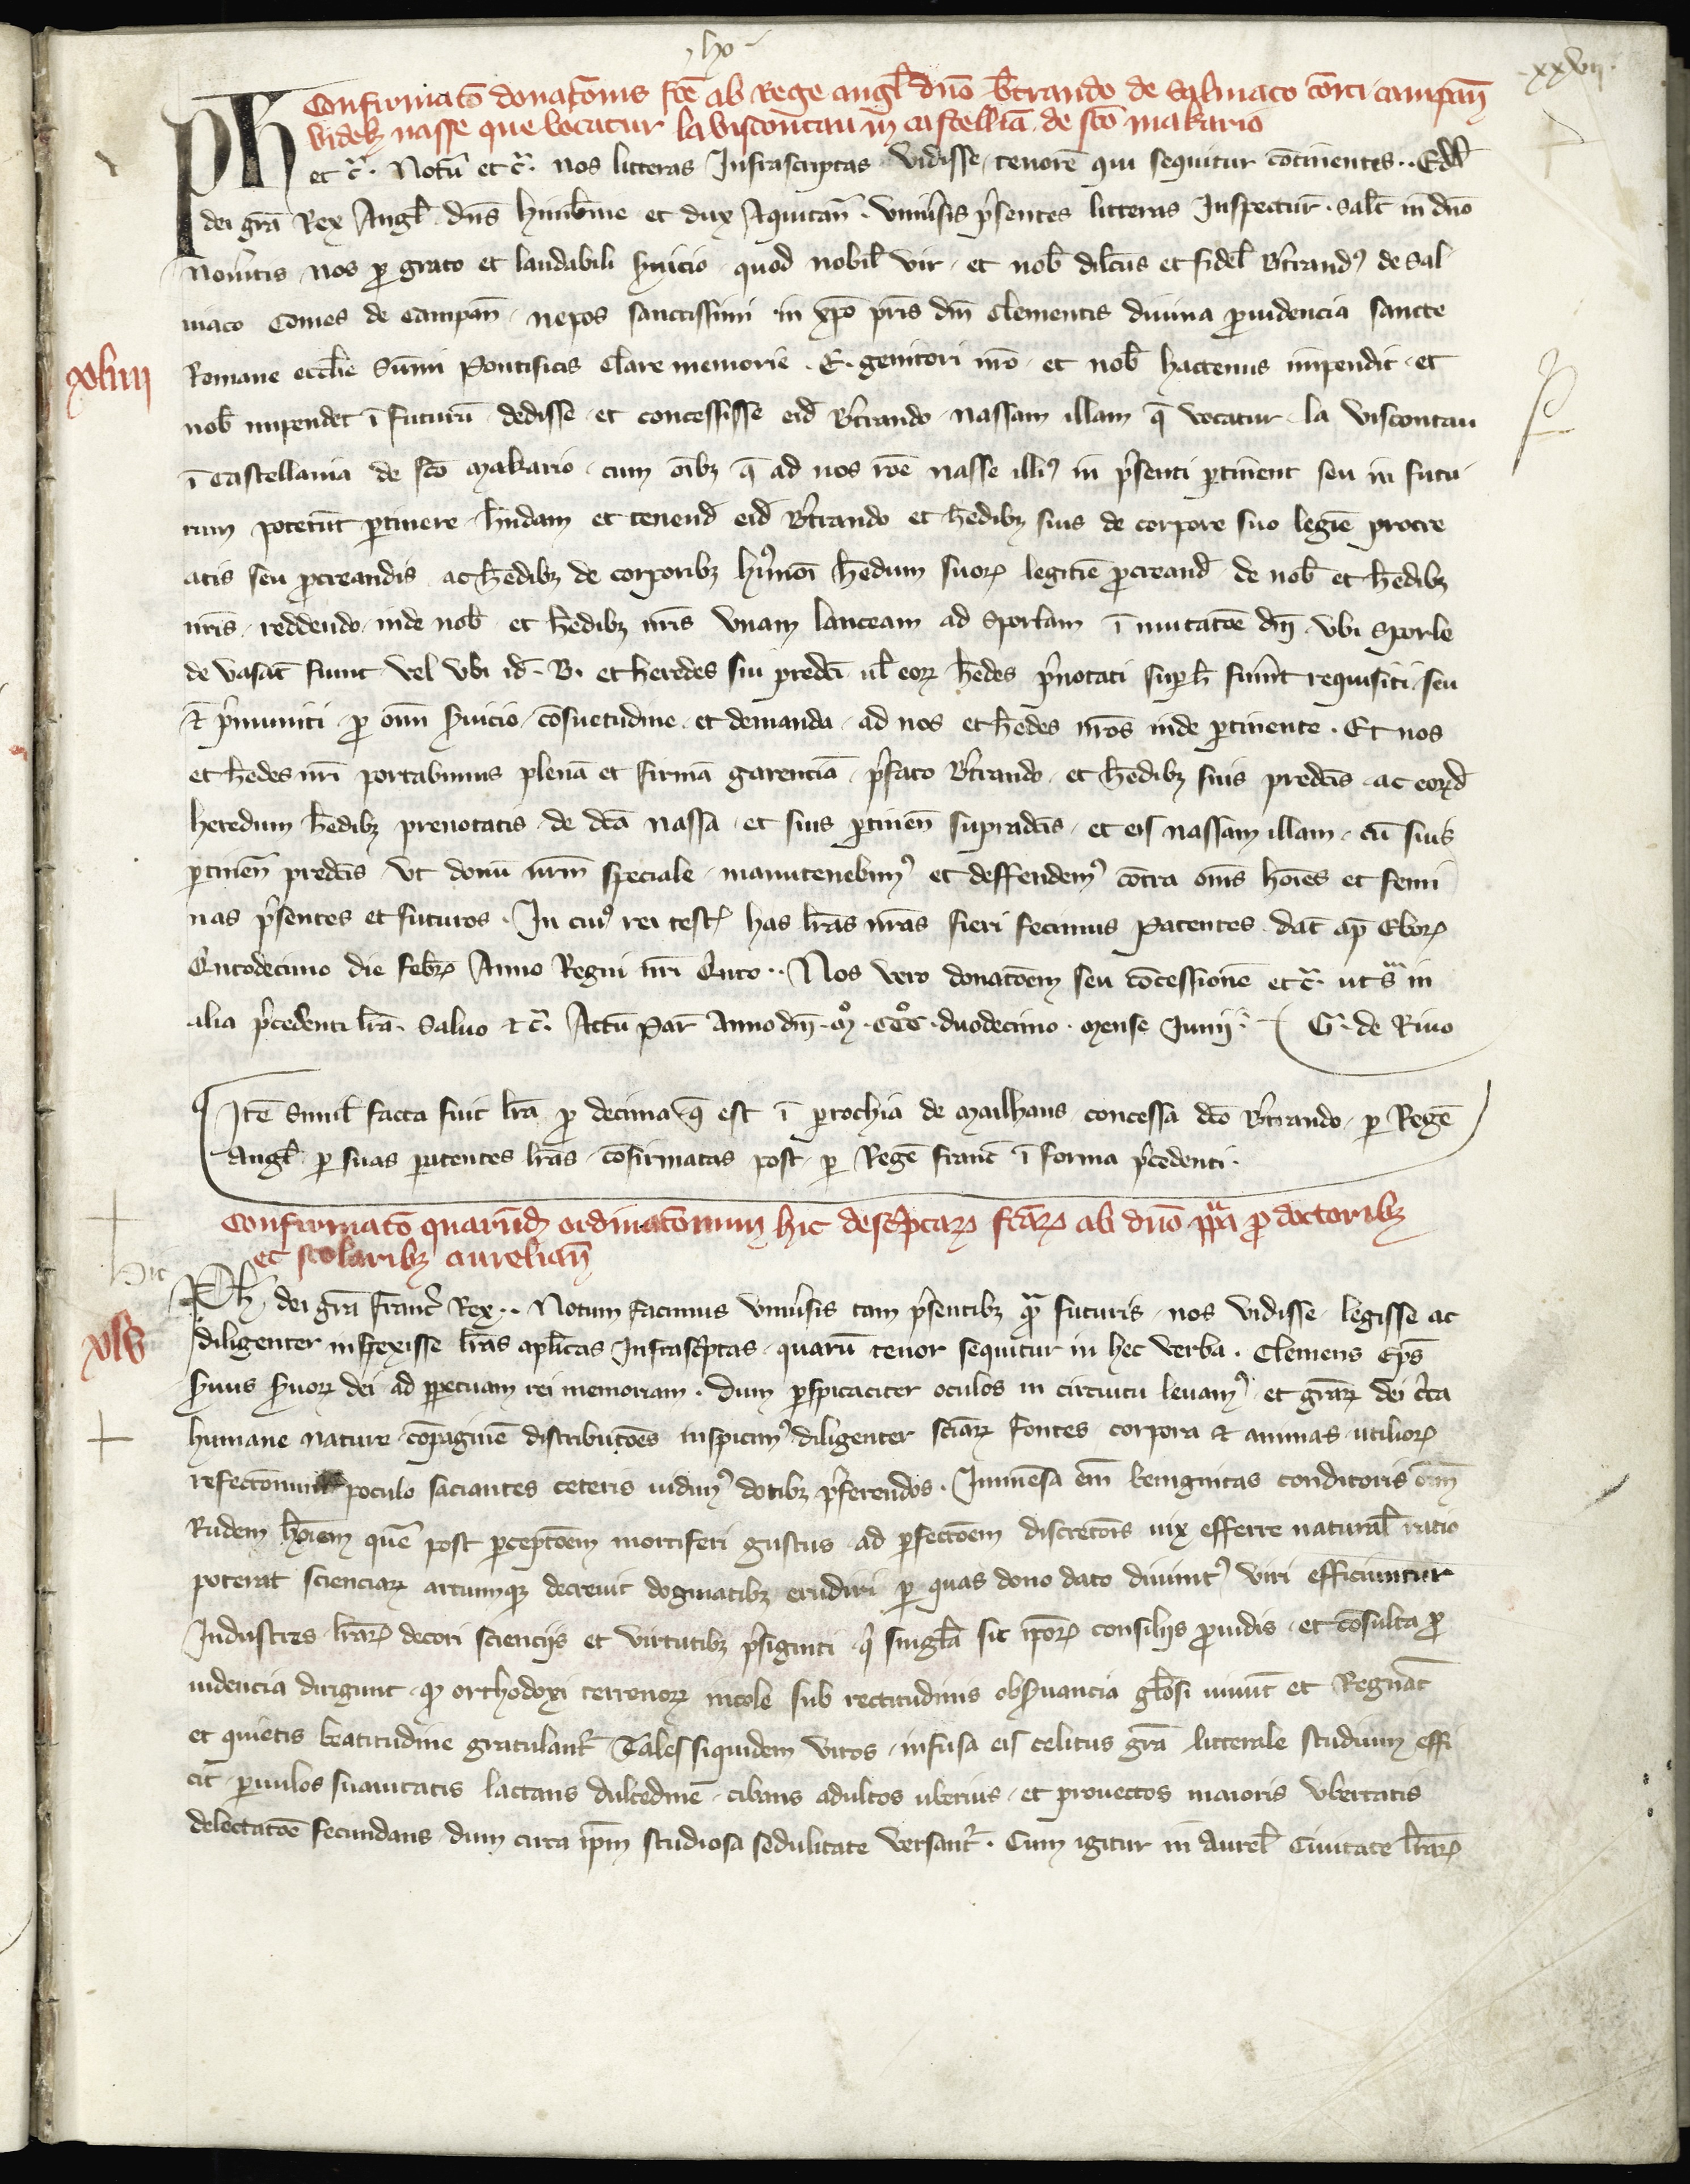 ho
xxvii
Confirmatō donatōnis fcē ab Rege angl̄ dn̄o Bt̄rando de Salviaco cōiti campan̄
videlꝫ nasse que vocatur la viscontau in castellīa de sc̄o makario
Ph
et c̄. Notū et c̄. nos litteras Infrascriptas vidisse, tenorē qui sequitur cōtinentes.. Edd̄
dei grā Rex Angl̄ dn̄s hinib̄nie et dux Aquitan̄. vniu̓sis p̓sentes litteras Inspectur̄. Sal̄t in dn̄o
Nou̓itis nos ꝓ grato et laudabili s̓uicio quod nobil̄ vir et nob̄ dil̄cus et fidel̄ Bt̓randꝰ de Sal
uiaco Comes de Campan̄ nepos sanctissimi in xp̄o pr̄is dn̄i Clementis diuina ꝓuidencia sancte
xliiii
Romane eccl̄ie Sūmi Pontificis Clare memorie. E. genitori nr̄o et nob̄ hactenus impendit et
nob̄ impendet ī futurū dedisse et concessisse eid̄ Bt̓rando nassam illam q̄ vocatur la viscontau
ī Castellania de sc̄o makario cum oībꝫ q̄ ad nos rōe nasse illiꝰ in p̓senti ꝑtinent seu in futu
rum poterūt ꝑtinere hn̄dam et tenend̄ eid̄ Bt̓rando et hēdibꝫ suis de corpore suo legīe procre
atis seu ꝓcreandis ac hēdibꝫ de corporibꝫ hꝰmōi hēdum suoꝝ legitīe ꝓcreand̄ de nob̄ et hēdibꝫ
nr̄is reddendo inde nob̄ et hēdibꝫ nr̄is vnam lanceam ad sporlam ī mutatōe dn̄i vbi sporle
de vasat̄ fiunt vel vbi id̄. B. et heredes sui predc̄i ul̄ eoꝝ hēdes p̓notati suꝑ h̄ fuīnt requisiti seu
et̄ p̓muniti ꝓ om̄i s̓uicio cōsuetudine et demanda ad nos et hēdes nr̄os inde ꝑtinente. Et nos
et hēdes nr̄i portabimus plenā et firmā garentiā p̓fato Bt̓rando et hēdibꝫ suis predc̄is ac eoꝝd̄
heredum hēdibꝫ prenotatis de dc̄a nassa et suis ꝑtinen̄ supradc̄is et eis nassam illam cū suis
ꝑtinen̄ predc̄is vt donū nr̄m speciale manutenebimꝰ et deffendemꝰ cōtra om̄s hoīes et femi
nas p̓sentes et futuros. In cuiꝰ rei test̄ has lr̄as nr̄as fieri fecimus Patentes dat̄ ap̄ Eboꝝ
Qi̓ntodecimo die febꝝ Anno Regni nr̄i Qi̓nto.. Nos vero donatōem seu cōcessionē et c̄. ut s̄ in
alia p̓cedenti lr̄a. Saluo et c̄. Actū Par̄ Anno dn̄i. mº. cccº. duodecimo. mense Junij. G. de Riuo
Itē Simil̄ facta fuit lr̄a ꝓ decima q̄ est ī ꝑrochia de mailhans concessa dc̄o Bt̓rando ꝑ Regē
Angl̄ ꝑ suas patentes lr̄as cōfirmatas post ꝑ Regē franc̄ ī forma p̓cedenti.
Confirmatō quarūdā ordinatōnum hic descptaꝝ fc̄aꝝ ab dn̄o pp̄a ꝓ doctoribꝫ
et scolaribꝫ aurelian̄
hic
Ph dei grā franc̓ Rex.. Notum facimus vniu̓sis tam p̓sentibꝫ q̄ futuris nos vidisse legisse ac
xlv
diligenter inspexisse lr̄as apl̄icas Infrascptas quarū tenor sequitur in hec verba. Clemens Ep̄s
s̓uus s̓uoꝝ dei ad ꝑpetuam rei memoriam. dum ꝑspicaciter oculos in circuitu leuamꝰ et gr̄aꝝ dei c̓ca
humane nature cōpaginē distributōes inspicimꝰ diligenter sciāꝝ fontes corpora et animas utilioꝝ
refectōnum poculo saciantes ceteris uidimꝰ dotibꝫ p̓ferendos. Immēsa em̄ benignitas conditoris om̄
Rudem hoīem quē post ꝑceptōem mortiferi gustus ad ꝑfectōem discretōis uix efferre natural̄ ratio
poterat scienciaꝝ artiumqꝫ decreuit dogmatibꝫ erudiri ꝑ quas dono dato diuinitꝰ viri efficiuntur
Industres lr̄aꝝ decori sciencijs et virtutibꝫ p̓signiti q̓ singl̄a sic ip̄oꝝ consilijs ꝓuidis et cōsulta ꝓ
uidencia dirigunt qꝫ orthodoxi terrenoꝝ incole sub rectitudinis obs̓uancia gl̄osi uiuūt et Regnāt
et quietis beatitudine gratulant̄ Tales siquidem viros infusa eis celitus grā litterale studium effi
cit ꝑuulos suauitatis lactans dulcedinē cibans adultos uberius et prouectos maioris vbertatis
delectatōe fecundans dum circa ip̄m studiosa sedulitate versant̄. Cum igitur in Aurel̄ Ciuitate lr̄aꝝ